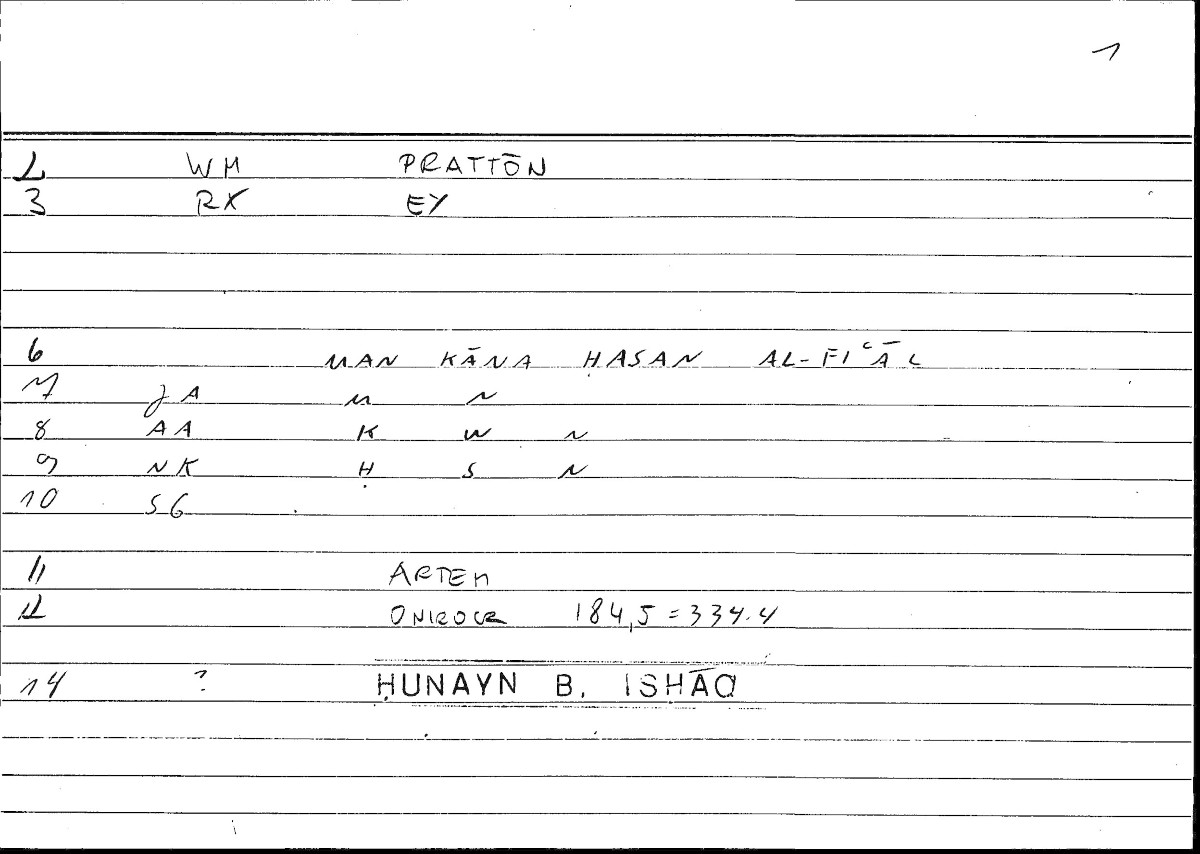 1
2 WM PRATTŌN
3 RX EY
6 MAN KĀNA ḤASAN AL-FIʿĀL
7 JA M N
8 AA K W N
9 NK Ḥ S N
10 SG
11 ARTEM
12 ONIROCR 184,5 = 334.4
14 ? ḤUNAYN B. ISḤĀQ